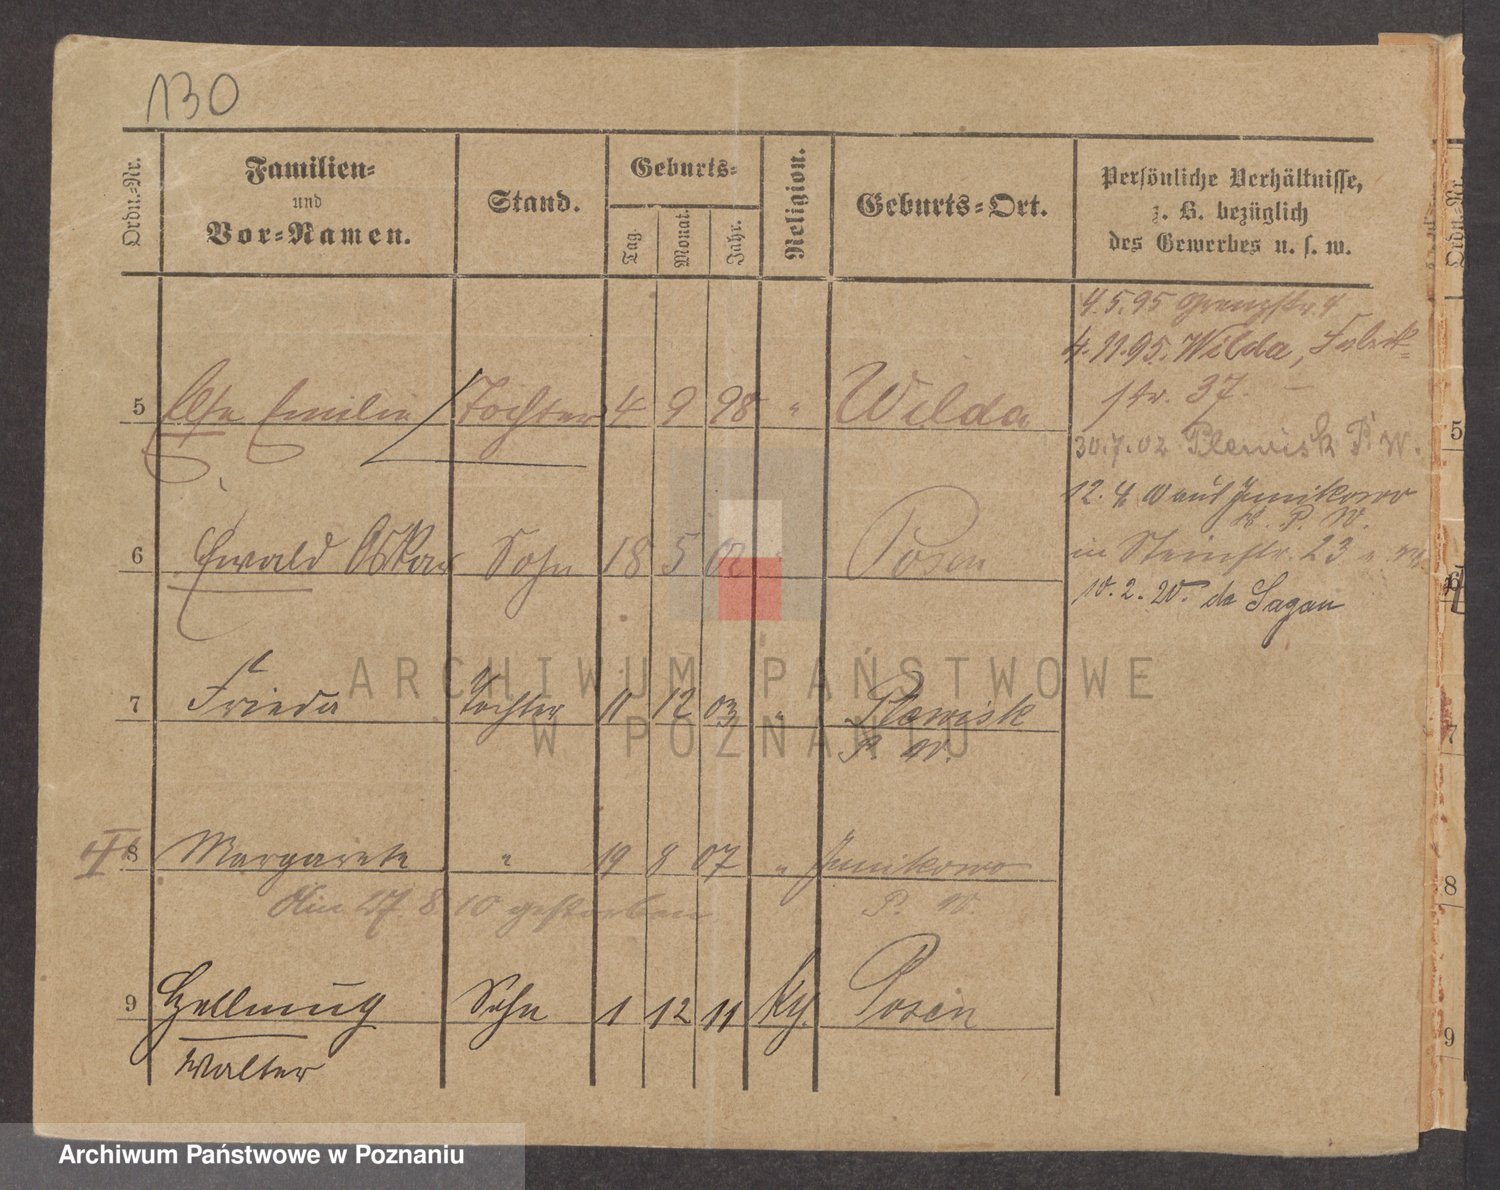 130
Ordn.-Nr.
Familien-
und
Vor-Namen.
Stand.
Geburts-
Tag.
Monat.
Jahr.
Religion.
Geburts-Ort.
Persönliche Verhältnisse,
z. B. bezüglich
des Gewerbes u. s. w.
Ordn.-Nr.
4.5.95 Grenzstr. 4
4.11.95. Wilda, Fabrik-
str. 37. —
5 Else Emilie Tochter 4 9 98 " Wilda
30.7.02 Plewisk P. W.
12. 4. Junikowo
K. P. W.
6 Ewald Oskar Sohn 18 5 02 " Posen
in Steinstr. 23
10. 2. 20. Sagan
7 Frieda Tochter 11 12 03 " Plewisk
P. W.
8 Margarete " 19 8 07 " Junikowo
Am 27 8 10 gestorben P. W.
9 Hellmuth Sohn 1 12 11 Posen
Walter
5
6
7
8
9
ARCHIWUM PAŃSTWOWE
W POZNANIU
Archiwum Państwowe w Poznaniu